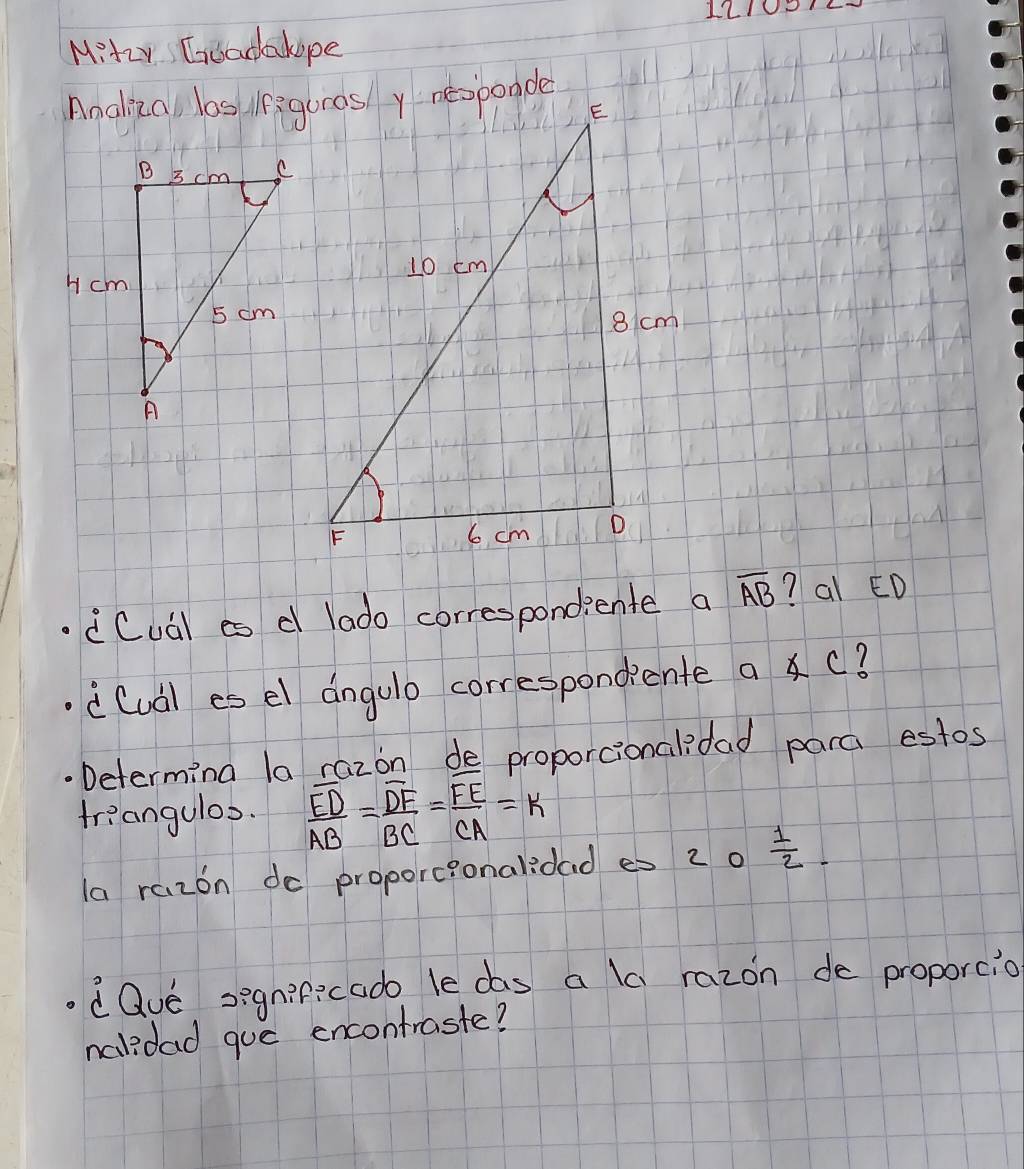 Mitzy Guadalupe
Analiza las figuras y responde
E
B 3 cm C
10 cm
4 cm
5 cm
8 cm
A
F 6 cm D
• ¿Cuál es el lado correspondiente a AB? al ED
• ¿Cuál es el ángulo correspondiente a ∡ C?
• Determina la razón de proporcionalidad para estos
triangulos. ED/AB = DF/BC = FE/CA = K
la razón de proporcionalidad es 2 o 1/2.
• ¿Qué significado le das a la razón de proporcio
nalidad que encontraste?